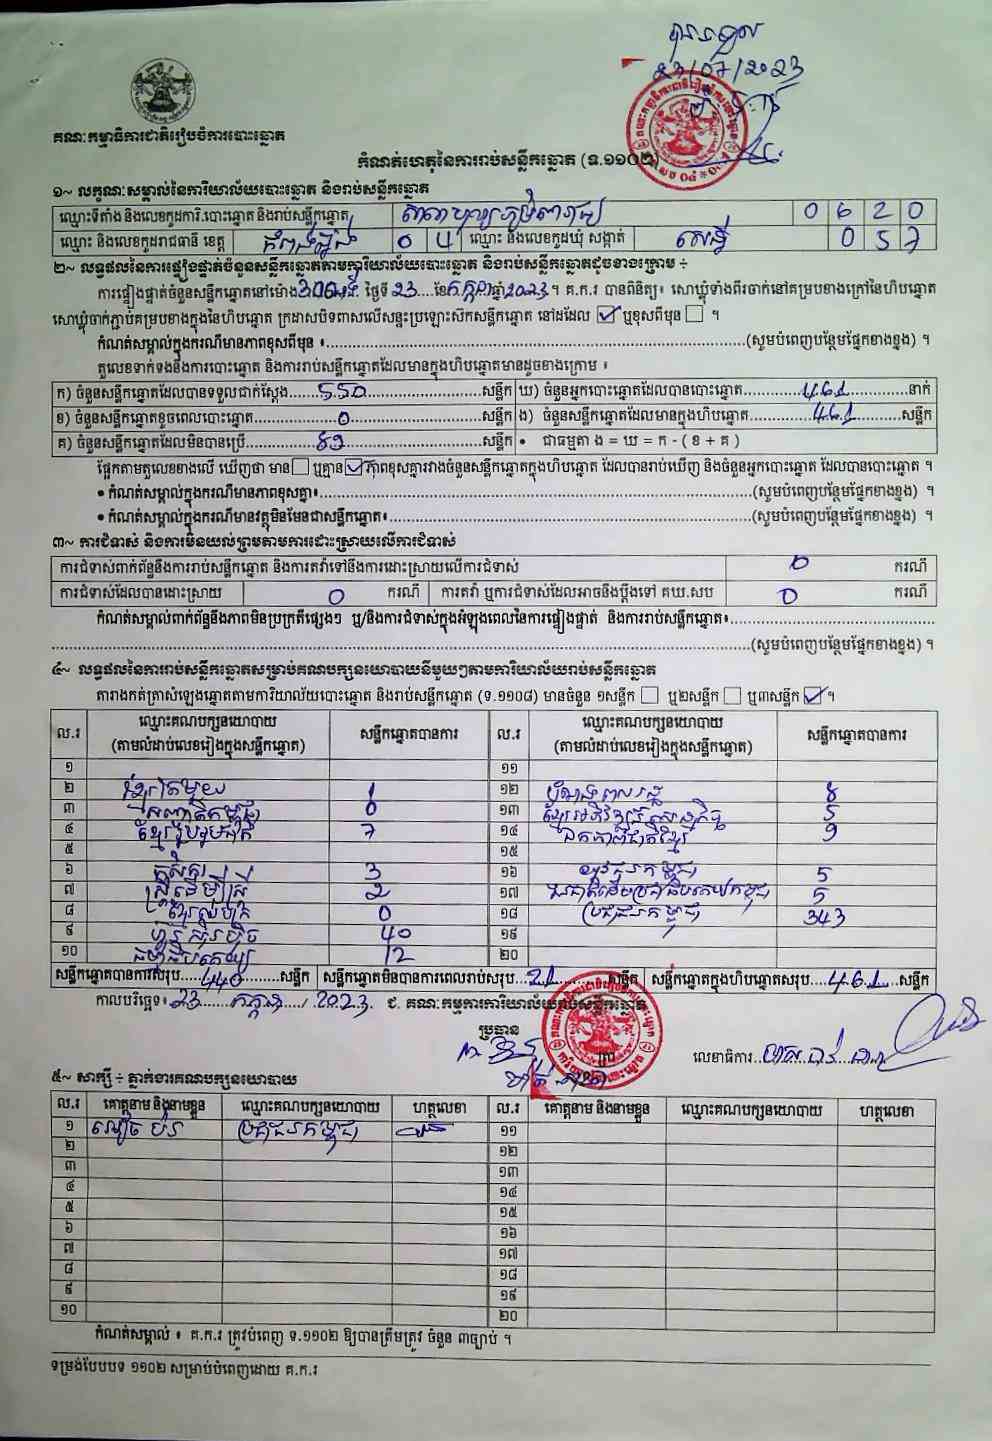 ២៣/០៧/២០២៣
គណៈកម្មាធិការជាតិរៀបចំការបោះឆ្នោត
កំណត់ហេតុនៃការរាប់សន្លឹកឆ្នោត (ទ.១១០២)
១~ លក្ខណៈសម្គាល់នៃការិយាល័យបោះឆ្នោត និងរាប់សន្លឹកឆ្នោត
ឈ្មោះទីតាំង និងលេខកូដការិ.បោះឆ្នោត និងរាប់សន្លឹកឆ្នោត 0 6 2 0
ឈ្មោះ និងលេខកូដរាជធានី ខេត្ត កំពង់ឆ្នាំង 0 4 ឈ្មោះ និងលេខកូដឃុំ សង្កាត់ សេដ្ឋី 0 5 7
២~ លទ្ធផលនៃការផ្ទៀងផ្ទាត់ចំនួនសន្លឹកឆ្នោតតាមការិយាល័យបោះឆ្នោត និងរាប់សន្លឹកឆ្នោតដូចខាងក្រោម ÷
ការផ្ទៀងផ្ទាត់ចំនួនសន្លឹកឆ្នោតនៅម៉ោង ថ្ងៃទី 23 ខែ កក្កដា ឆ្នាំ 2023 ។ គ.ក.រ បានពិនិត្យ៖ សោឃ្លុំទាំងពីរចាក់នៅគម្របខាងក្រៅនៃហិបឆ្នោត
សោឃ្លុំចាក់ភ្ជាប់គម្របខាងក្នុងនៃហិបឆ្នោត ក្រដាសបិទពាសលើសន្ទះប្រឡោះស៊កសន្លឹកឆ្នោត នៅដដែល ☑ ឬខុសពីមុន ☐ ។
កំណត់សម្គាល់ក្នុងករណីមានភាពខុសពីមុន ៖ (សូមបំពេញបន្ថែមផ្នែកខាងខ្នង) ។
តួលេខទាក់ទងនឹងការបោះឆ្នោត និងការរាប់សន្លឹកឆ្នោតដែលមានក្នុងហិបឆ្នោតមានដូចខាងក្រោម ៖
ក) ចំនួនសន្លឹកឆ្នោតដែលបានទទួលជាក់ស្តែង 550 សន្លឹក ឃ) ចំនួនអ្នកបោះឆ្នោតដែលបានបោះឆ្នោត 461 នាក់
ខ) ចំនួនសន្លឹកឆ្នោតខូចពេលបោះឆ្នោត 0 សន្លឹក ង) ចំនួនសន្លឹកឆ្នោតដែលមានក្នុងហិបឆ្នោត 461 សន្លឹក
គ) ចំនួនសន្លឹកឆ្នោតដែលមិនបានប្រើ 89 សន្លឹក • ជាធម្មតា ង = ឃ = ក - ( ខ + គ )
ផ្អែកតាមតួលេខខាងលើ ឃើញថា មាន ☐ ឬគ្មាន ☑ ភាពខុសគ្នារវាងចំនួនសន្លឹកឆ្នោតក្នុងហិបឆ្នោត ដែលបានរាប់ឃើញ និងចំនួនអ្នកបោះឆ្នោត ដែលបានបោះឆ្នោត ។
• កំណត់សម្គាល់ក្នុងករណីមានភាពខុសគ្នា៖ (សូមបំពេញបន្ថែមផ្នែកខាងខ្នង) ។
• កំណត់សម្គាល់ក្នុងករណីមានវត្ថុមិនមែនជាសន្លឹកឆ្នោត៖ (សូមបំពេញបន្ថែមផ្នែកខាងខ្នង) ។
៣~ ការជំទាស់ និងការមិនយល់ព្រមតាមការដោះស្រាយលើការជំទាស់
ការជំទាស់ពាក់ព័ន្ធនឹងការរាប់សន្លឹកឆ្នោត និងការតវ៉ាទៅនឹងការដោះស្រាយលើការជំទាស់ 0 ករណី
ការជំទាស់ដែលបានដោះស្រាយ 0 ករណី ការតវ៉ា ឬការជំទាស់ដែលអាចនឹងប្តឹងទៅ គឃ.សប 0 ករណី
កំណត់សម្គាល់ពាក់ព័ន្ធនឹងភាពមិនប្រក្រតីផ្សេងៗ ឬ/និងការជំទាស់ក្នុងអំឡុងពេលនៃការផ្ទៀងផ្ទាត់ និងការរាប់សន្លឹកឆ្នោត៖
(សូមបំពេញបន្ថែមផ្នែកខាងខ្នង) ។
៤~ លទ្ធផលនៃការរាប់សន្លឹកឆ្នោតសម្រាប់គណបក្សនយោបាយនីមួយៗតាមការិយាល័យរាប់សន្លឹកឆ្នោត
តារាងកត់ត្រាសំឡេងឆ្នោតតាមការិយាល័យបោះឆ្នោត និងរាប់សន្លឹកឆ្នោត (ទ.១១០៨) មានចំនួន ១សន្លឹក ☐ ឬ២សន្លឹក ☐ ឬ៣សន្លឹក ☑ ។
ល.រ ឈ្មោះគណបក្សនយោបាយ (តាមលំដាប់លេខរៀងក្នុងសន្លឹកឆ្នោត) សន្លឹកឆ្នោតបានការ ល.រ ឈ្មោះគណបក្សនយោបាយ (តាមលំដាប់លេខរៀងក្នុងសន្លឹកឆ្នោត) សន្លឹកឆ្នោតបានការ
១ ១១
២ ខ្មែរតែមួយ 1 ១២ 8
៣ 0 ១៣ ខ្មែរអភិវឌ្ឍន៍សេដ្ឋកិច្ច 5
៤ ខ្មែររួបរួមជាតិ 7 ១៤ ឯកភាពជាតិខ្មែរ 9
៥ ១៥
៦ កសិករ 3 ១៦ យុវជនកម្ពុជា 5
៧ ស្ត្រីដើម្បីស្ត្រី 2 ១៧ ជនជាតិដើមប្រជាធិបតេយ្យកម្ពុជា 5
៨ 0 ១៨ ប្រជាជនកម្ពុជា 343
៩ ហ៊្វុនស៊ិនប៉ិច 40 ១៩
១០ 12 ២០
សន្លឹកឆ្នោតបានការសរុប 440 សន្លឹក សន្លឹកឆ្នោតមិនបានការពេលរាប់សរុប 21 សន្លឹក សន្លឹកឆ្នោតក្នុងហិបឆ្នោតសរុប 461 សន្លឹក
កាលបរិច្ឆេទ៖ 23 / កក្កដា / 2023 ជ. គណៈកម្មការការិយាល័យរាប់សន្លឹកឆ្នោត
ប្រធាន
លេខាធិការ
៥~ សាក្សី ÷ ភ្នាក់ងារគណបក្សនយោបាយ
ល.រ គោត្តនាម និងនាមខ្លួន ឈ្មោះគណបក្សនយោបាយ ហត្ថលេខា ល.រ គោត្តនាម និងនាមខ្លួន ឈ្មោះគណបក្សនយោបាយ ហត្ថលេខា
១ ប្រជាជនកម្ពុជា ១១
២ ១២
៣ ១៣
៤ ១៤
៥ ១៥
៦ ១៦
៧ ១៧
៨ ១៨
៩ ១៩
១០ ២០
កំណត់សម្គាល់ ៖ គ.ក.រ ត្រូវបំពេញ ទ.១១០២ ឱ្យបានត្រឹមត្រូវ ចំនួន ៣ច្បាប់ ។
ទម្រង់បែបបទ ១១០២ សម្រាប់បំពេញដោយ គ.ក.រ